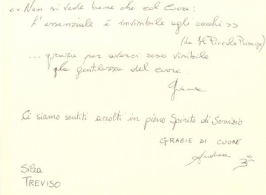 «Non si vede bene che col cuore:
l'essenziale è invisibile agli occhi»
(da Il Piccolo Principe)
... grazie per averci reso visibile
la gentilezza del cuore
Ci siamo sentiti accolti in pieno Spirito di Servizio
GRAZIE DI CUORE
Andrea
Silea
TREVISO